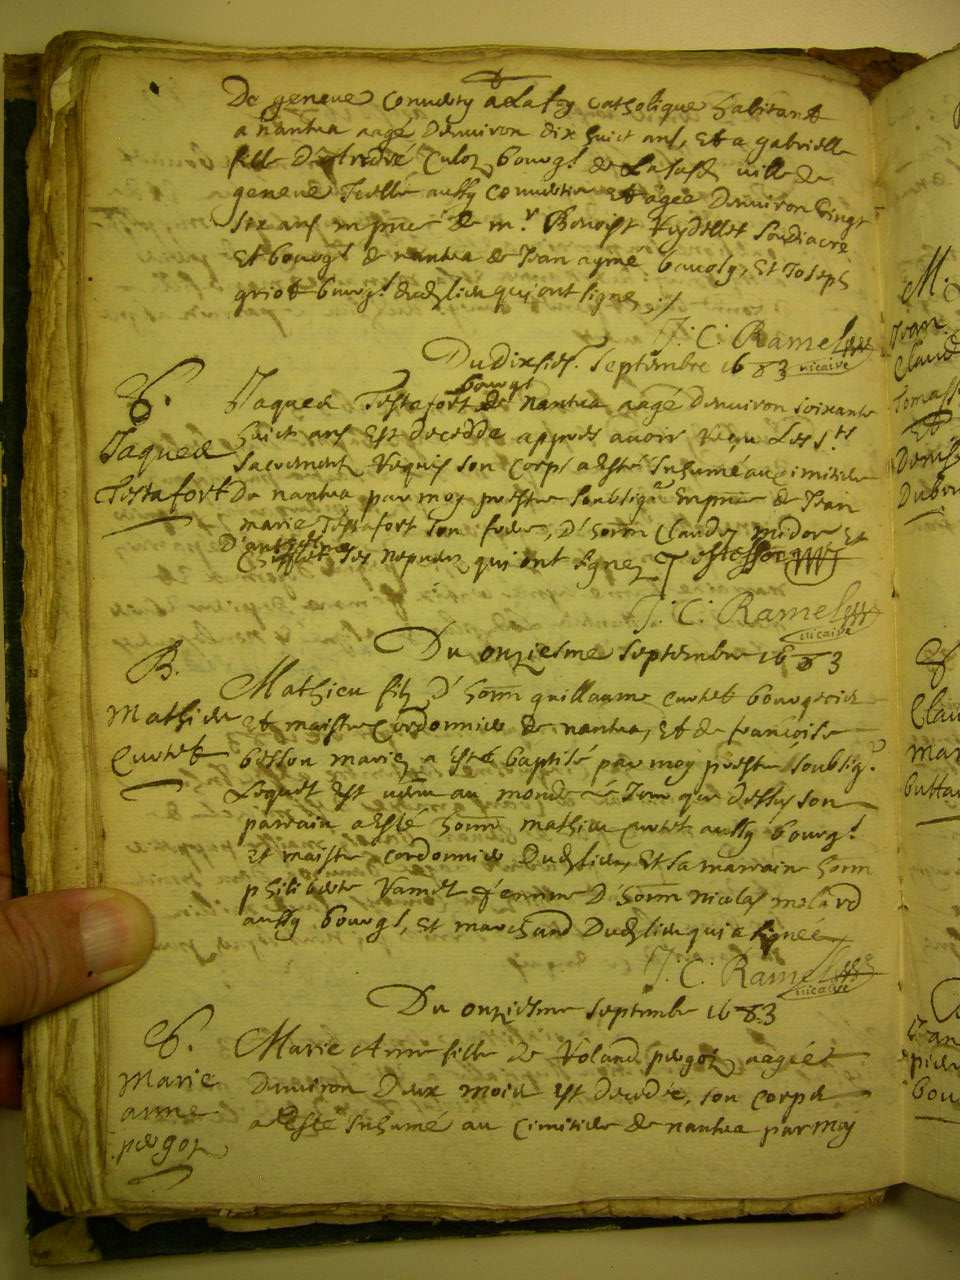 De geneve converty a La foy catholique habitant
a nantua aagé denviron dix huict ans, Et a gabrielle
fille D'andré Culoz bourg.s de La susd. ville de
geneve Icelle aussy convertie et agée Denviron vingt
six ans en pnce de m.r Benoist Soudiacre
Et bourg.s de nantua de Jean aymé Et Joseph
griot bourg.s dud. lieu qui ont signez ./.
J: C: Ramel
vicaire
Du dixsies. Septembre 1683
S.
Jaques
Testafort
Jaques Testafort bourgs de nantua aagé denviron soixante
huict ans Est decedde appres avoir reçu Les S.ts
sacrement requis son corps a Esté Inhumé au cimitiere
De nantua par moy prestre soubsigné En pnce de Jean
marie Testafort son frere, D'honn Claude midor Et
D'anthoine ses nepveu qui ont signez
J: C: Ramel
vicaire
Du onziesme Septembre 1683
B.
Mathieu
Curtet
Mathieu filz D'honn guillaume Curtet bourgeois
et maistre Cordonnier de nantua, Et de francoise
besson mariez a esté baptisé par moy prestre soubsig.é
Lequel Est venu au monde Le Jour que dessus son
parrain a Esté honn mathieu Curtet aussy bourg.s
Et maistre cordonnier Dud. lieu, Et sa marraine honn
philiberte Vamet femme D'honn nicolas molard
aussy bourg.s, Et marchand Dud. lieu qui a signée
J: C: Ramel
vicaire
Du onziesme Septembre 1683
S.
Marie
anne
pergoz
Marie Anne fille de Roland pergoz aageé
Denviron Deux mois Est decedée, son corps
a Esté Inhumé au Cimitiere de nantua par moy